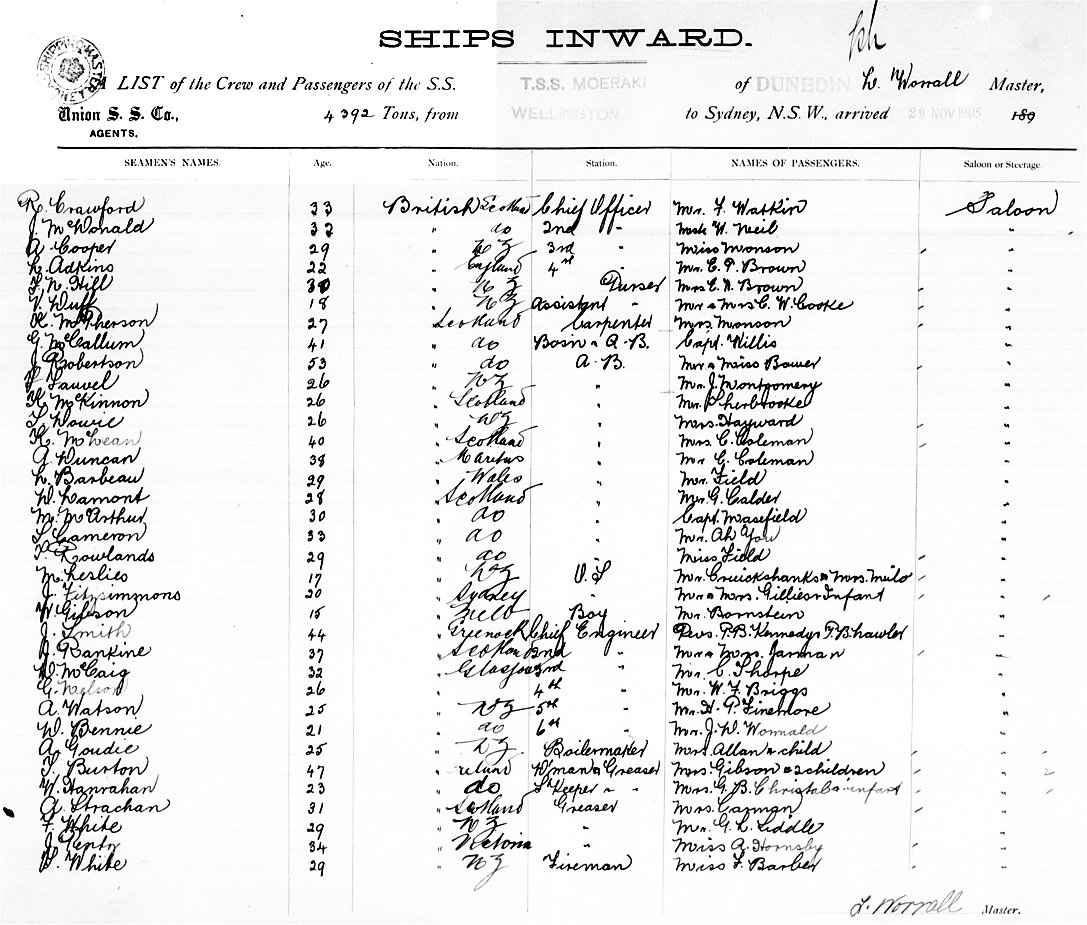 SHIPS INWARD.
A LIST of the Crew and Passengers of the S.S. T.S.S. MOERAKI of DUNEDIN L. Worrall Master,
Union S. S. Co., 4392 Tons, from WELLINGTON to Sydney, N.S.W., arrived 29 NOV 1905 189
AGENTS.
SEAMEN'S NAMES. Age. Nation. Station. NAMES OF PASSENGERS. Saloon or Steerage.
R. Crawford 33 British Scotland Chief Officer Mr. F. Watkin Saloon
J. McDonald 32 " do 2nd " W. Neil "
A. Cooper 29 " NZ 3rd " Miss Monson "
L. Adkins 22 " England 4th Mr. E. P. Brown "
F. N. Hill " NZ Purser Mrs E. N. Brown "
V. Duff 18 " NZ Assistant " Mr & Mrs C. W. Cooke "
K. McPherson 27 Scotland Carpenter Mrs. Monson "
G. McCallum 41 " do Bosn & A.B. Capt. Willis "
J. Robertson 53 " do A.B. Mr & Miss Bower "
Fauvel 26 " NZ " Mr. J. Montgomery "
K. McKinnon 26 " Scotland " Mr. Sherbrooke "
Dowie 26 " NZ " Mrs. Hayward "
K. McLean 40 " Scotland " Mrs. C. Coleman "
A. Duncan 38 " " Mr. C. Coleman "
L. Barbeau 29 " Wales " Mr. Field "
D. Lamont 28 " Scotland " Mr. G. Calder "
M. McArthur 30 " do " Capt. Masefield "
Cameron 33 " do " Mr. Ah You "
Rowlands 29 " do " Miss Field "
M. Leslies 17 " NZ O.S Mr. Cruickshanks & Mrs. Milo "
J. Fitzsimmons 20 " Sydney " Mr & Mrs. Gillies & Infant "
W. Gibson 15 " Boy Mr. Bornstein "
J. Smith 44 " Greenock Chief Engineer Revs. P.B. Kennedy & P.B. Lawler "
A. Rankine 37 " Scotland 2nd " Mr & Mrs. Jarman "
D. McCaig 32 " Glasgow 3rd " Mr. C. Thorpe "
G. Nelson 26 " 4th " Mr. W. F. Briggs "
A. Watson 25 " NZ 5th " Mr. H. P. Finemore "
D. Bennie 21 " do 6th " Mr. J. D. Wormald "
A. Goudie 25 " NZ Boilermaker Mrs. Allan & child "
T. Burton 47 " reland Dman & Greaser Mrs. Gibson & 2 children " 2
W. Hanrahan 23 " do St Keeper " " Mrs. G. B. Christal & infant "
A. Strachan 31 " Scotland Greaser Mrs. Carman "
F. White 29 " NZ " Mr. G. L. Liddle "
J. 34 " Victoria " Miss A. Hornsby "
White 29 " NZ Fireman Miss F. Barber "
L. Worrall Master.